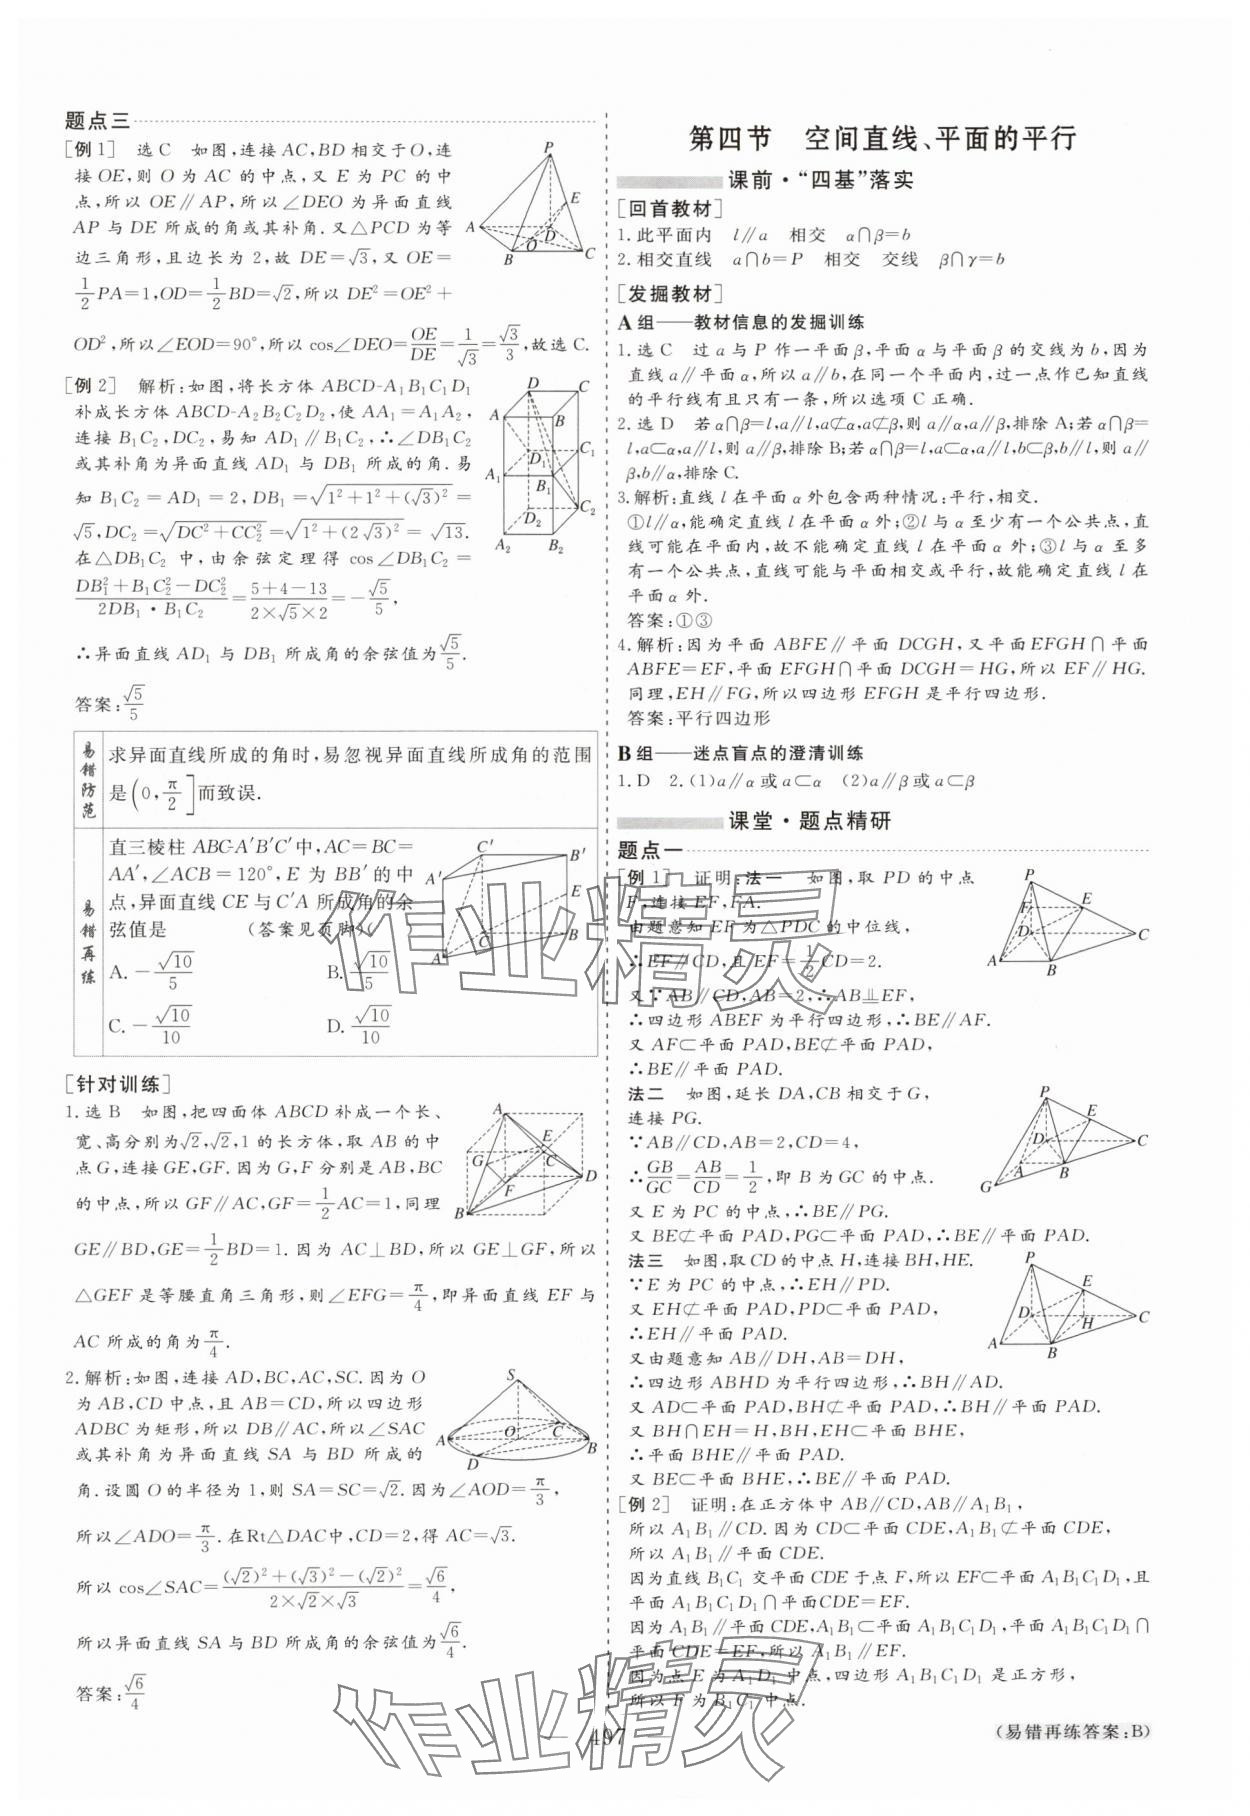 题点三
[例1] 选C 如图,连接AC,BD相交于O,连
接OE,则O为AC的中点,又E为PC的中
点,所以OE∥AP,所以∠DEO为异面直线
AP与DE所成的角或其补角.又△PCD为等
边三角形,且边长为2,故DE=√3,又OE=
1/2PA=1,OD=1/2BD=√2,所以DE²=OE²+
OD²,所以∠EOD=90°,所以cos∠DEO=OE/DE=1/√3=√3/3,故选C.
[例2] 解析:如图,将长方体ABCD-A₁B₁C₁D₁
补成长方体ABCD-A₂B₂C₂D₂,使AA₁=A₁A₂,
连接B₁C₂,DC₂,易知AD₁∥B₁C₂,∴∠DB₁C₂
或其补角为异面直线AD₁与DB₁所成的角.易
知B₁C₂=AD₁=2,DB₁=√(1²+1²+(√3)²)=
√5,DC₂=√(DC²+CC₂²)=√(1²+(2√3)²)=√13.
在△DB₁C₂中,由余弦定理得cos∠DB₁C₂=
(DB₁²+B₁C₂²-DC₂²)/(2DB₁·B₁C₂)=(5+4-13)/(2×√5×2)=-√5/5,
∴异面直线AD₁与DB₁所成角的余弦值为√5/5.
答案:√5/5
易错防范
求异面直线所成的角时,易忽视异面直线所成角的范围
是(0,π/2]而致误.
易错再练
直三棱柱ABC-A′B′C′中,AC=BC=
AA′,∠ACB=120°,E为BB′的中
点,异面直线CE与C′A所成角的余
弦值是 (答案见页脚)
A.-√10/5 B.√10/5
C.-√10/10 D.√10/10
[针对训练]
1.选B 如图,把四面体ABCD补成一个长、
宽、高分别为√2,√2,1的长方体,取AB的中
点G,连接GE,GF.因为G,F分别是AB,BC
的中点,所以GF∥AC,GF=1/2AC=1,同理
GE∥BD,GE=1/2BD=1.因为AC⊥BD,所以GE⊥GF,所以
△GEF是等腰直角三角形,则∠EFG=π/4,即异面直线EF与
AC所成的角为π/4.
2.解析:如图,连接AD,BC,AC,SC.因为O
为AB,CD中点,且AB=CD,所以四边形
ADBC为矩形,所以DB∥AC,所以∠SAC
或其补角为异面直线SA与BD所成的
角.设圆O的半径为1,则SA=SC=√2.因为∠AOD=π/3,
所以∠ADO=π/3.在Rt△DAC中,CD=2,得AC=√3.
所以cos∠SAC=((√2)²+(√3)²-(√2)²)/(2×√2×√3)=√6/4,
所以异面直线SA与BD所成角的余弦值为√6/4.
答案:√6/4
第四节 空间直线、平面的平行
课前·“四基”落实
[回首教材]
1.此平面内 l∥a 相交 α∩β=b
2.相交直线 a∩b=P 相交 交线 β∩γ=b
[发掘教材]
A组——教材信息的发掘训练
1.选C 过a与P作一平面β,平面α与平面β的交线为b,因为
直线a∥平面α,所以a∥b,在同一个平面内,过一点作已知直线
的平行线有且只有一条,所以选项C正确.
2.选D 若α∩β=l,a∥l,a⊄α,a⊄β,则a∥α,a∥β,排除A;若α∩β=
l,a⊂α,a∥l,则a∥β,排除B;若α∩β=l,a⊂α,a∥l,b⊂β,b∥l,则a∥
β,b∥α,排除C.
3.解析:直线l在平面α外包含两种情况:平行,相交.
①l∥α,能确定直线l在平面α外;②l与α至少有一个公共点,直
线可能在平面内,故不能确定直线l在平面α外;③l与α至多
有一个公共点,直线可能与平面相交或平行,故能确定直线l在
平面α外.
答案:①③
4.解析:因为平面ABFE∥平面DCGH,又平面EFGH∩平面
ABFE=EF,平面EFGH∩平面DCGH=HG,所以EF∥HG.
同理,EH∥FG,所以四边形EFGH是平行四边形.
答案:平行四边形
B组——迷点盲点的澄清训练
1.D 2.(1)a∥α或a⊂α (2)a∥β或a⊂β
课堂·题点精研
题点一
[例1] 证明:法一 如图,取PD的中点
F,连接EF,FA.
由题意知EF为△PDC的中位线,
∴EF∥CD,且EF=1/2CD=2.
又∵AB∥CD,AB=2,∴AB⫫EF,
∴四边形ABEF为平行四边形,∴BE∥AF.
又AF⊂平面PAD,BE⊄平面PAD,
∴BE∥平面PAD.
法二 如图,延长DA,CB相交于G,
连接PG.
∵AB∥CD,AB=2,CD=4,
∴GB/GC=AB/CD=1/2,即B为GC的中点.
又E为PC的中点,∴BE∥PG.
又BE⊄平面PAD,PG⊂平面PAD,∴BE∥平面PAD.
法三 如图,取CD的中点H,连接BH,HE.
∵E为PC的中点,∴EH∥PD.
又EH⊄平面PAD,PD⊂平面PAD,
∴EH∥平面PAD.
又由题意知AB∥DH,AB=DH,
∴四边形ABHD为平行四边形,∴BH∥AD.
又AD⊂平面PAD,BH⊄平面PAD,∴BH∥平面PAD.
又BH∩EH=H,BH,EH⊂平面BHE,
∴平面BHE∥平面PAD.
又BE⊂平面BHE,∴BE∥平面PAD.
[例2] 证明:在正方体中AB∥CD,AB∥A₁B₁,
所以A₁B₁∥CD.因为CD⊂平面CDE,A₁B₁⊄平面CDE,
所以A₁B₁∥平面CDE.
因为直线B₁C₁交平面CDE于点F,所以EF⊂平面A₁B₁C₁D₁,且
平面A₁B₁C₁D₁∩平面CDE=EF.
因为A₁B₁∥平面CDE,A₁B₁⊂平面A₁B₁C₁D₁,平面A₁B₁C₁D₁∩
平面CDE=EF,所以A₁B₁∥EF.
因为点E为A₁D₁中点,四边形A₁B₁C₁D₁是正方形,
所以F为B₁C₁中点.
497
(易错再练答案:B)
作业精灵
作业精灵